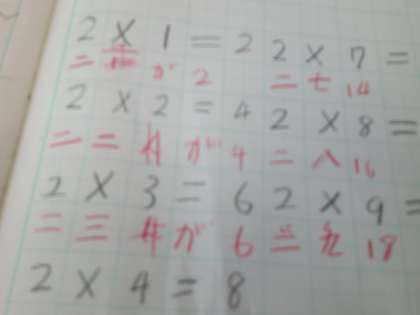 2 × 1 = 2 2 × 7 =
二 が 2 二 七 14
2 × 2 = 4 2 × 8 =
二 二 が 4 二 八 16
2 × 3 = 6 2 × 9 =
二 三 が 6 二 九 18
2 × 4 = 8